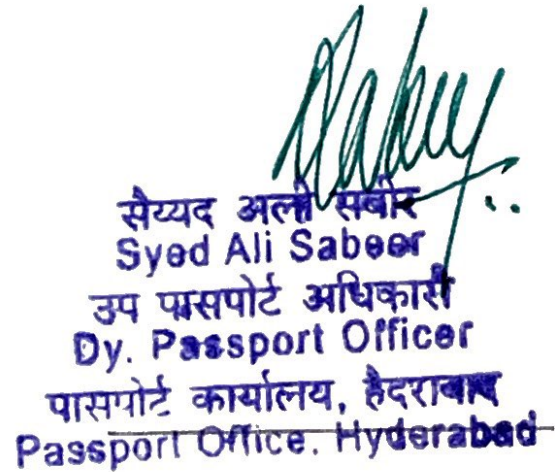 सैय्यद अली सबीर
Syed Ali Sabeer
उप पासपोर्ट अधिकारी
Dy. Passport Officer
पासपोर्ट कार्यालय, हैदराबाद
Passport Office. Hyderabad